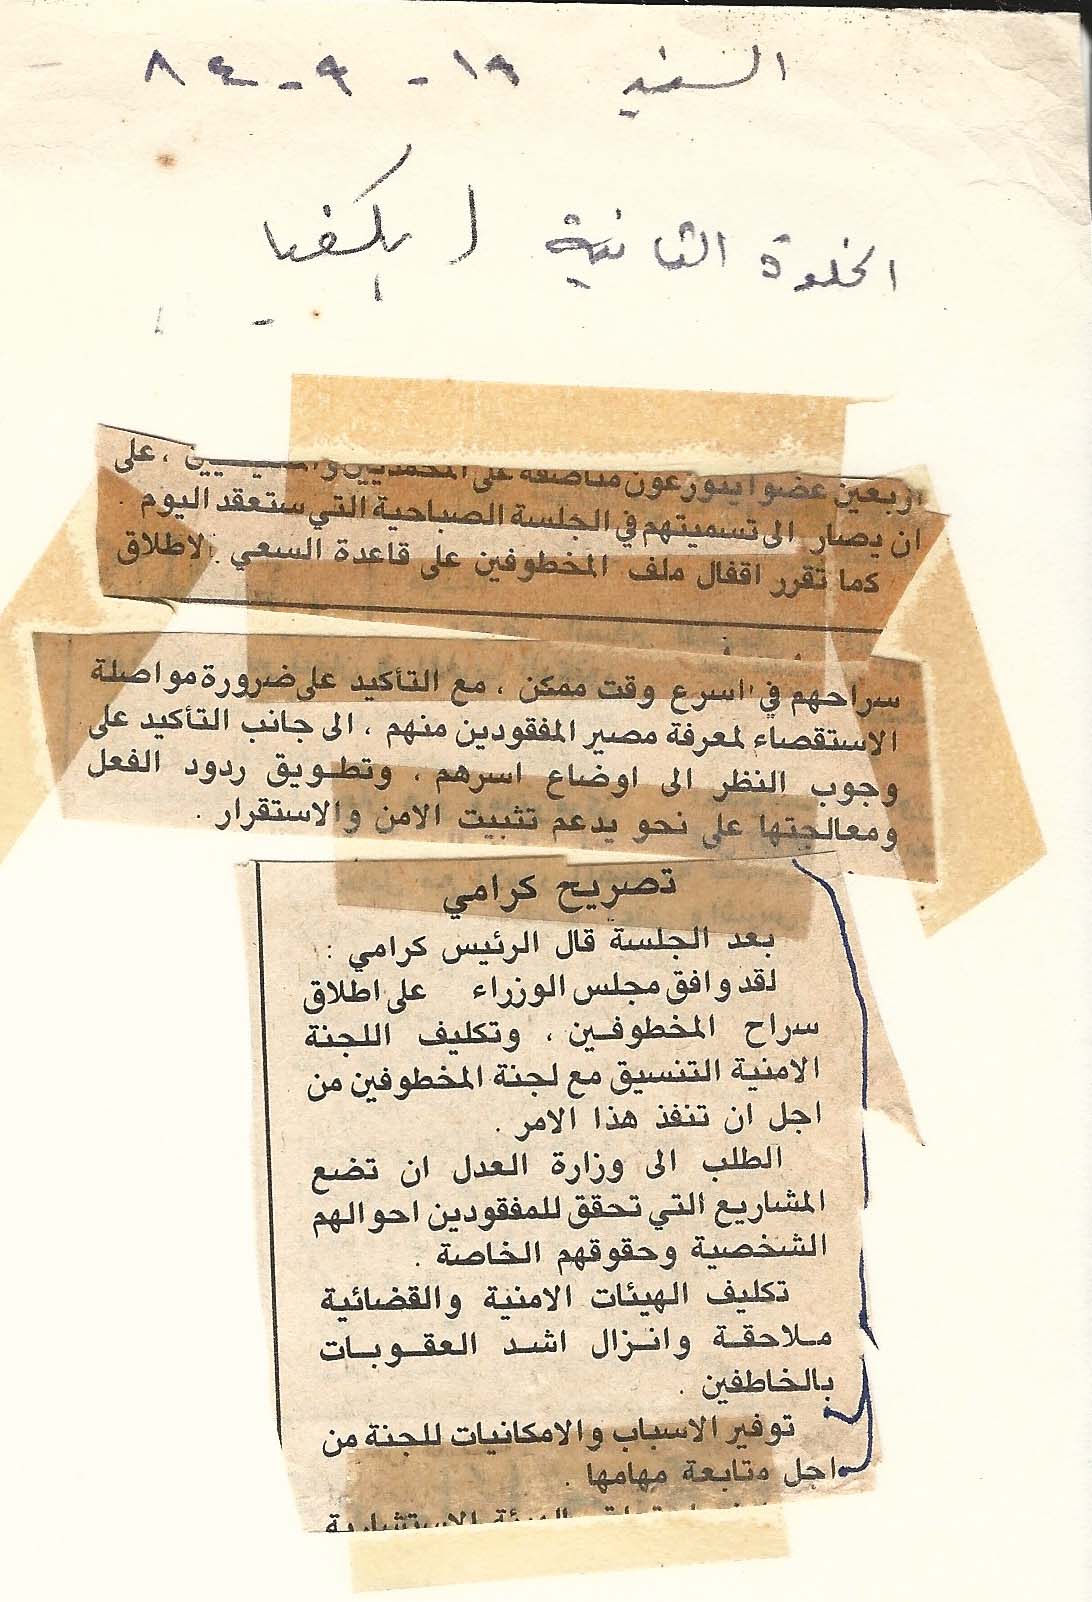 السفير ١٩ - ٩ - ٨٤
الخلوة الثانية / بكفيا
اربعين عضوا يتوزعون مناصفة على المحمديين والمسيحيين ، على
ان يصار الى تسميتهم في الجلسة الصباحية التي ستعقد اليوم .
كما تقرر اقفال ملف المخطوفين على قاعدة السعي لاطلاق
سراحهم في اسرع وقت ممكن ، مع التأكيد على ضرورة مواصلة
الاستقصاء لمعرفة مصير المفقودين منهم ، الى جانب التأكيد على
وجوب النظر الى اوضاع اسرهم ، وتطويق ردود الفعل
ومعالجتها على نحو يدعم تثبيت الامن والاستقرار .
تصريح كرامي
بعد الجلسة قال الرئيس كرامي :
لقد وافق مجلس الوزراء على اطلاق
سراح المخطوفين ، وتكليف اللجنة
الامنية التنسيق مع لجنة المخطوفين من
اجل ان تنفذ هذا الامر .
الطلب الى وزارة العدل ان تضع
المشاريع التي تحقق للمفقودين احوالهم
الشخصية وحقوقهم الخاصة .
تكليف الهيئات الامنية والقضائية
ملاحقة وانزال اشد العقوبات
بالخاطفين .
توفير الاسباب والامكانيات للجنة من
اجل متابعة مهامها .
الهيئة الاستشارية